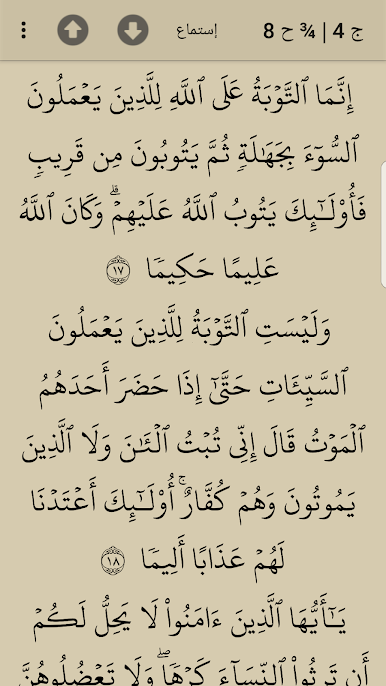 ج 4 | ¾ ح 8 إستماع
إِنَّمَا ٱلتَّوۡبَةُ عَلَى ٱللَّهِ لِلَّذِينَ يَعۡمَلُونَ
ٱلسُّوٓءَ بِجَهَٰلَةٖ ثُمَّ يَتُوبُونَ مِن قَرِيبٖ
فَأُوْلَٰٓئِكَ يَتُوبُ ٱللَّهُ عَلَيۡهِمۡۗ وَكَانَ ٱللَّهُ
عَلِيمًا حَكِيمٗا ١٧
وَلَيۡسَتِ ٱلتَّوۡبَةُ لِلَّذِينَ يَعۡمَلُونَ
ٱلسَّيِّـَٔاتِ حَتَّىٰٓ إِذَا حَضَرَ أَحَدَهُمُ
ٱلۡمَوۡتُ قَالَ إِنِّي تُبۡتُ ٱلۡـَٰٔنَ وَلَا ٱلَّذِينَ
يَمُوتُونَ وَهُمۡ كُفَّارٌۚ أُوْلَٰٓئِكَ أَعۡتَدۡنَا
لَهُمۡ عَذَابًا أَلِيمٗا ١٨
يَٰٓأَيُّهَا ٱلَّذِينَ ءَامَنُواْ لَا يَحِلُّ لَكُمۡ
أَن تَرِثُواْ ٱلنِّسَآءَ كَرۡهٗاۖ وَلَا تَعۡضُلُوهُنَّ